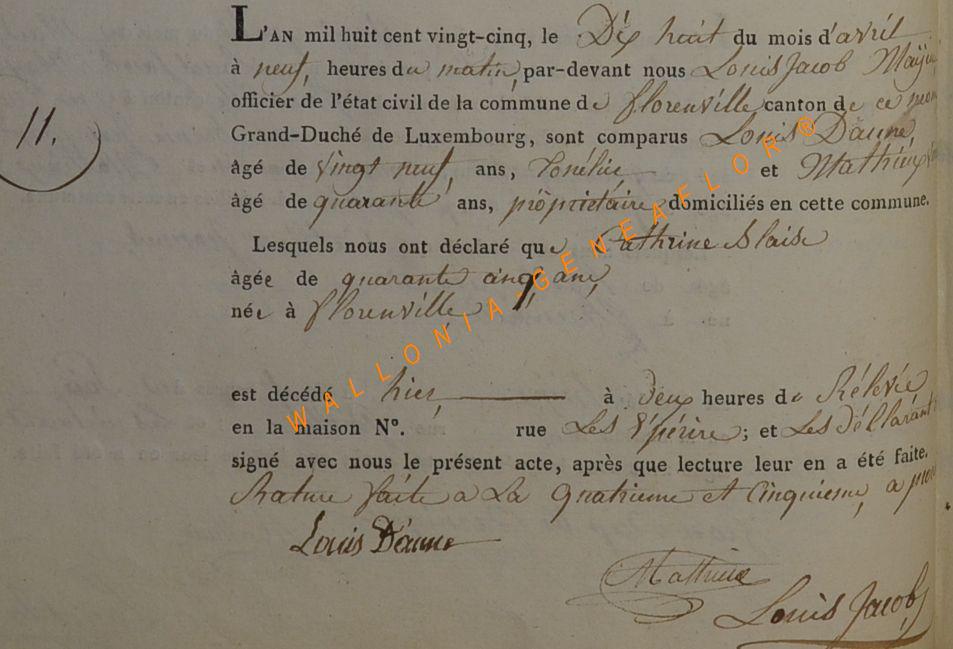 L'AN mil huit cent vingt-cinq, le Dix huit du mois d'avril
à neuf, heures du matin, par-devant nous Louis Jacob
officier de l'état civil de la commune de florenville canton de ce nom
11.
Grand-Duché de Luxembourg, sont comparus Louis Daune,
âgé de vingt neuf, ans, et Mathieu
âgé de quarante ans, propriétaire domiciliés en cette commune.
Lesquels nous ont déclaré que Cathrine Blaise
âgée de quarante cinq ans,
née à florenville
WALLONIA-GENEAFLOR®
est décédé hier, à deux heures de Rélévée
en la maison N°. rue Les ; et Les Déclarant
signé avec nous le présent acte, après que lecture leur en a été faite.
Rature faite a La quatrieme et Cinquiesme, a
Louis Daune
Mathieu
Louis Jacob,